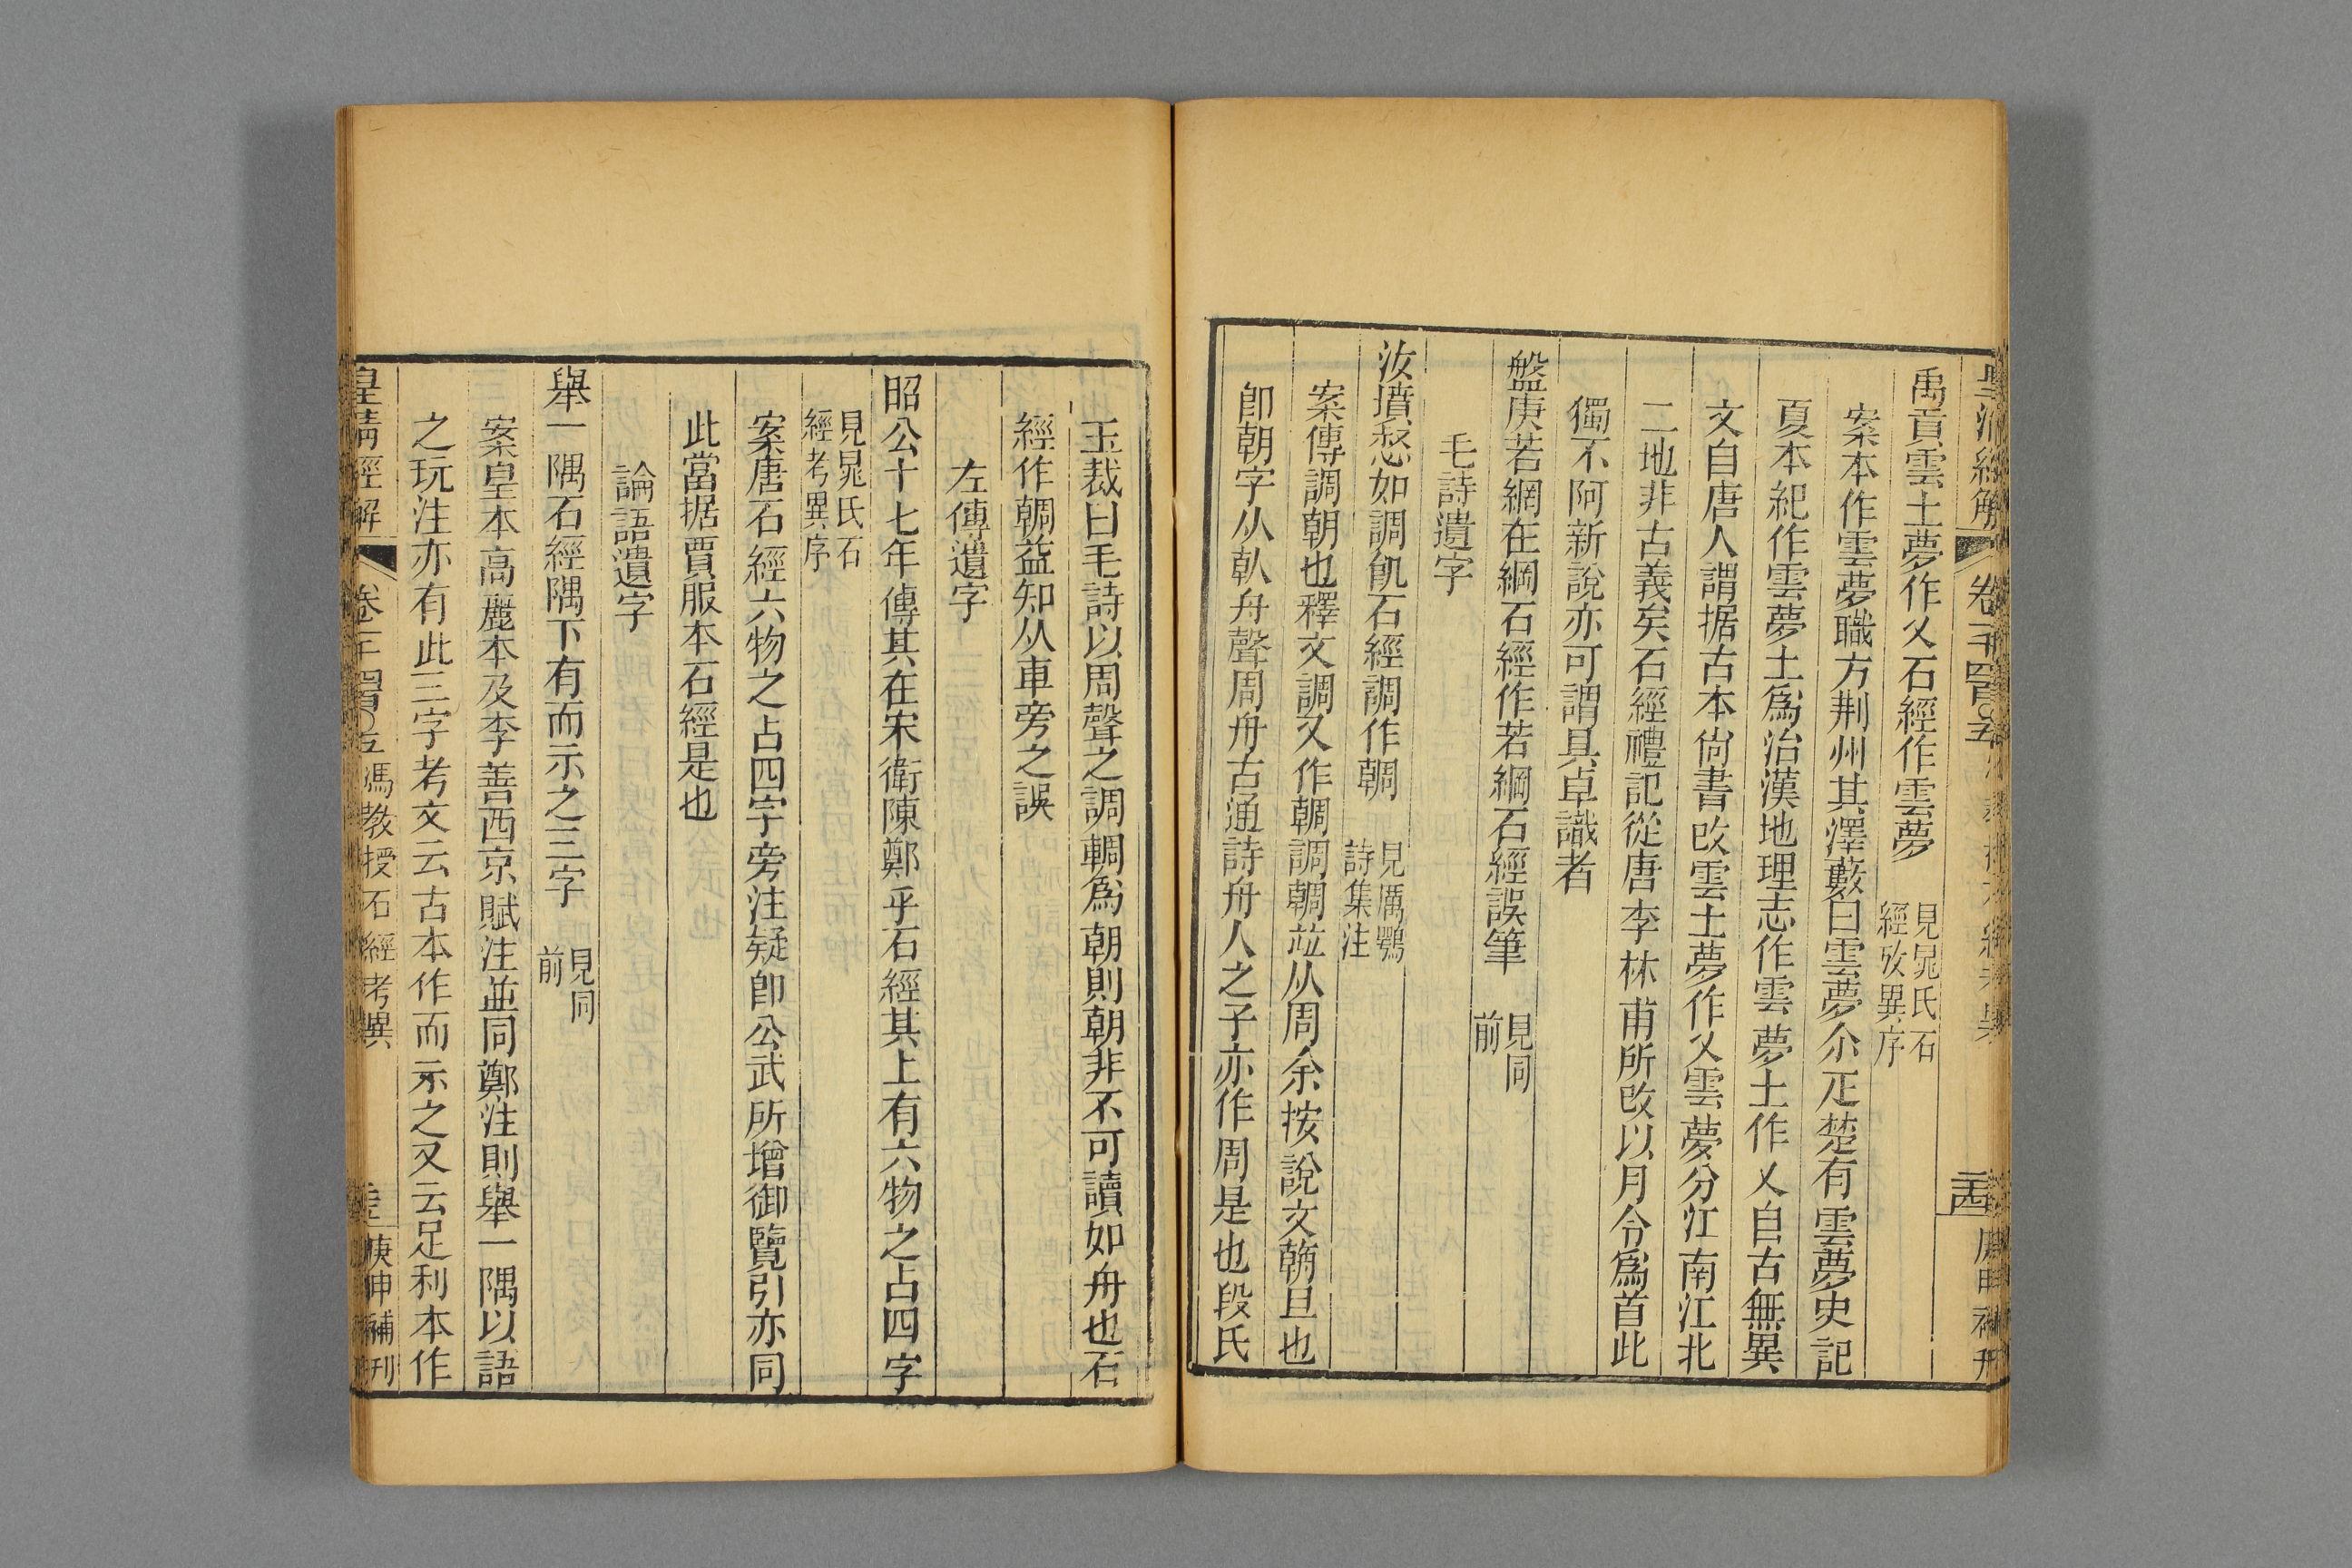 皇清經解 卷一千四百〇五 馮教授石經考異 二十四 庚申補刊
禹貢雲土夢作乂石經作雲夢 見晁氏石經攷異序
案本作雲夢職方荆州其澤藪曰雲夢尒疋楚有雲夢史記
夏本紀作雲夢土爲治漢地理志作雲夢土作乂自古無異
文自唐人謂据古本尙書改雲土夢作乂雲夢分江南江北
二地非古義矣石經禮記從唐李林甫所改以月令爲首此
獨不阿新說亦可謂具卓識者
盤庚若網在綱石經作若綱石經誤筆 見同前
毛詩遺字
汝墳惄如調飢石經調作朝 見厲鶚詩集注
案傳調朝也釋文調又作輖調輖竝从周余按說文翰旦也
卽朝字从倝舟聲周舟古通詩舟人之子亦作周是也段氏
玉裁曰毛詩以周聲之調輖爲朝則朝非不可讀如舟也石
經作輖益知从車旁之誤
左傳遺字
昭公十七年傳其在宋衛陳鄭乎石經其上有六物之占四字
見晁氏石經考異序
案唐石經六物之占四字旁注疑卽公武所增御覽引亦同
此當据賈服本石經是也
論語遺字
舉一隅石經隅下有而示之三字 見同前
案皇本高麗本及李善西京賦注並同鄭注則舉一隅以語
之玩注亦有此三字考文云古本作而示之又云足利本作
皇清經解 卷一千四百〇五 馮教授石經考異 庚申補刊